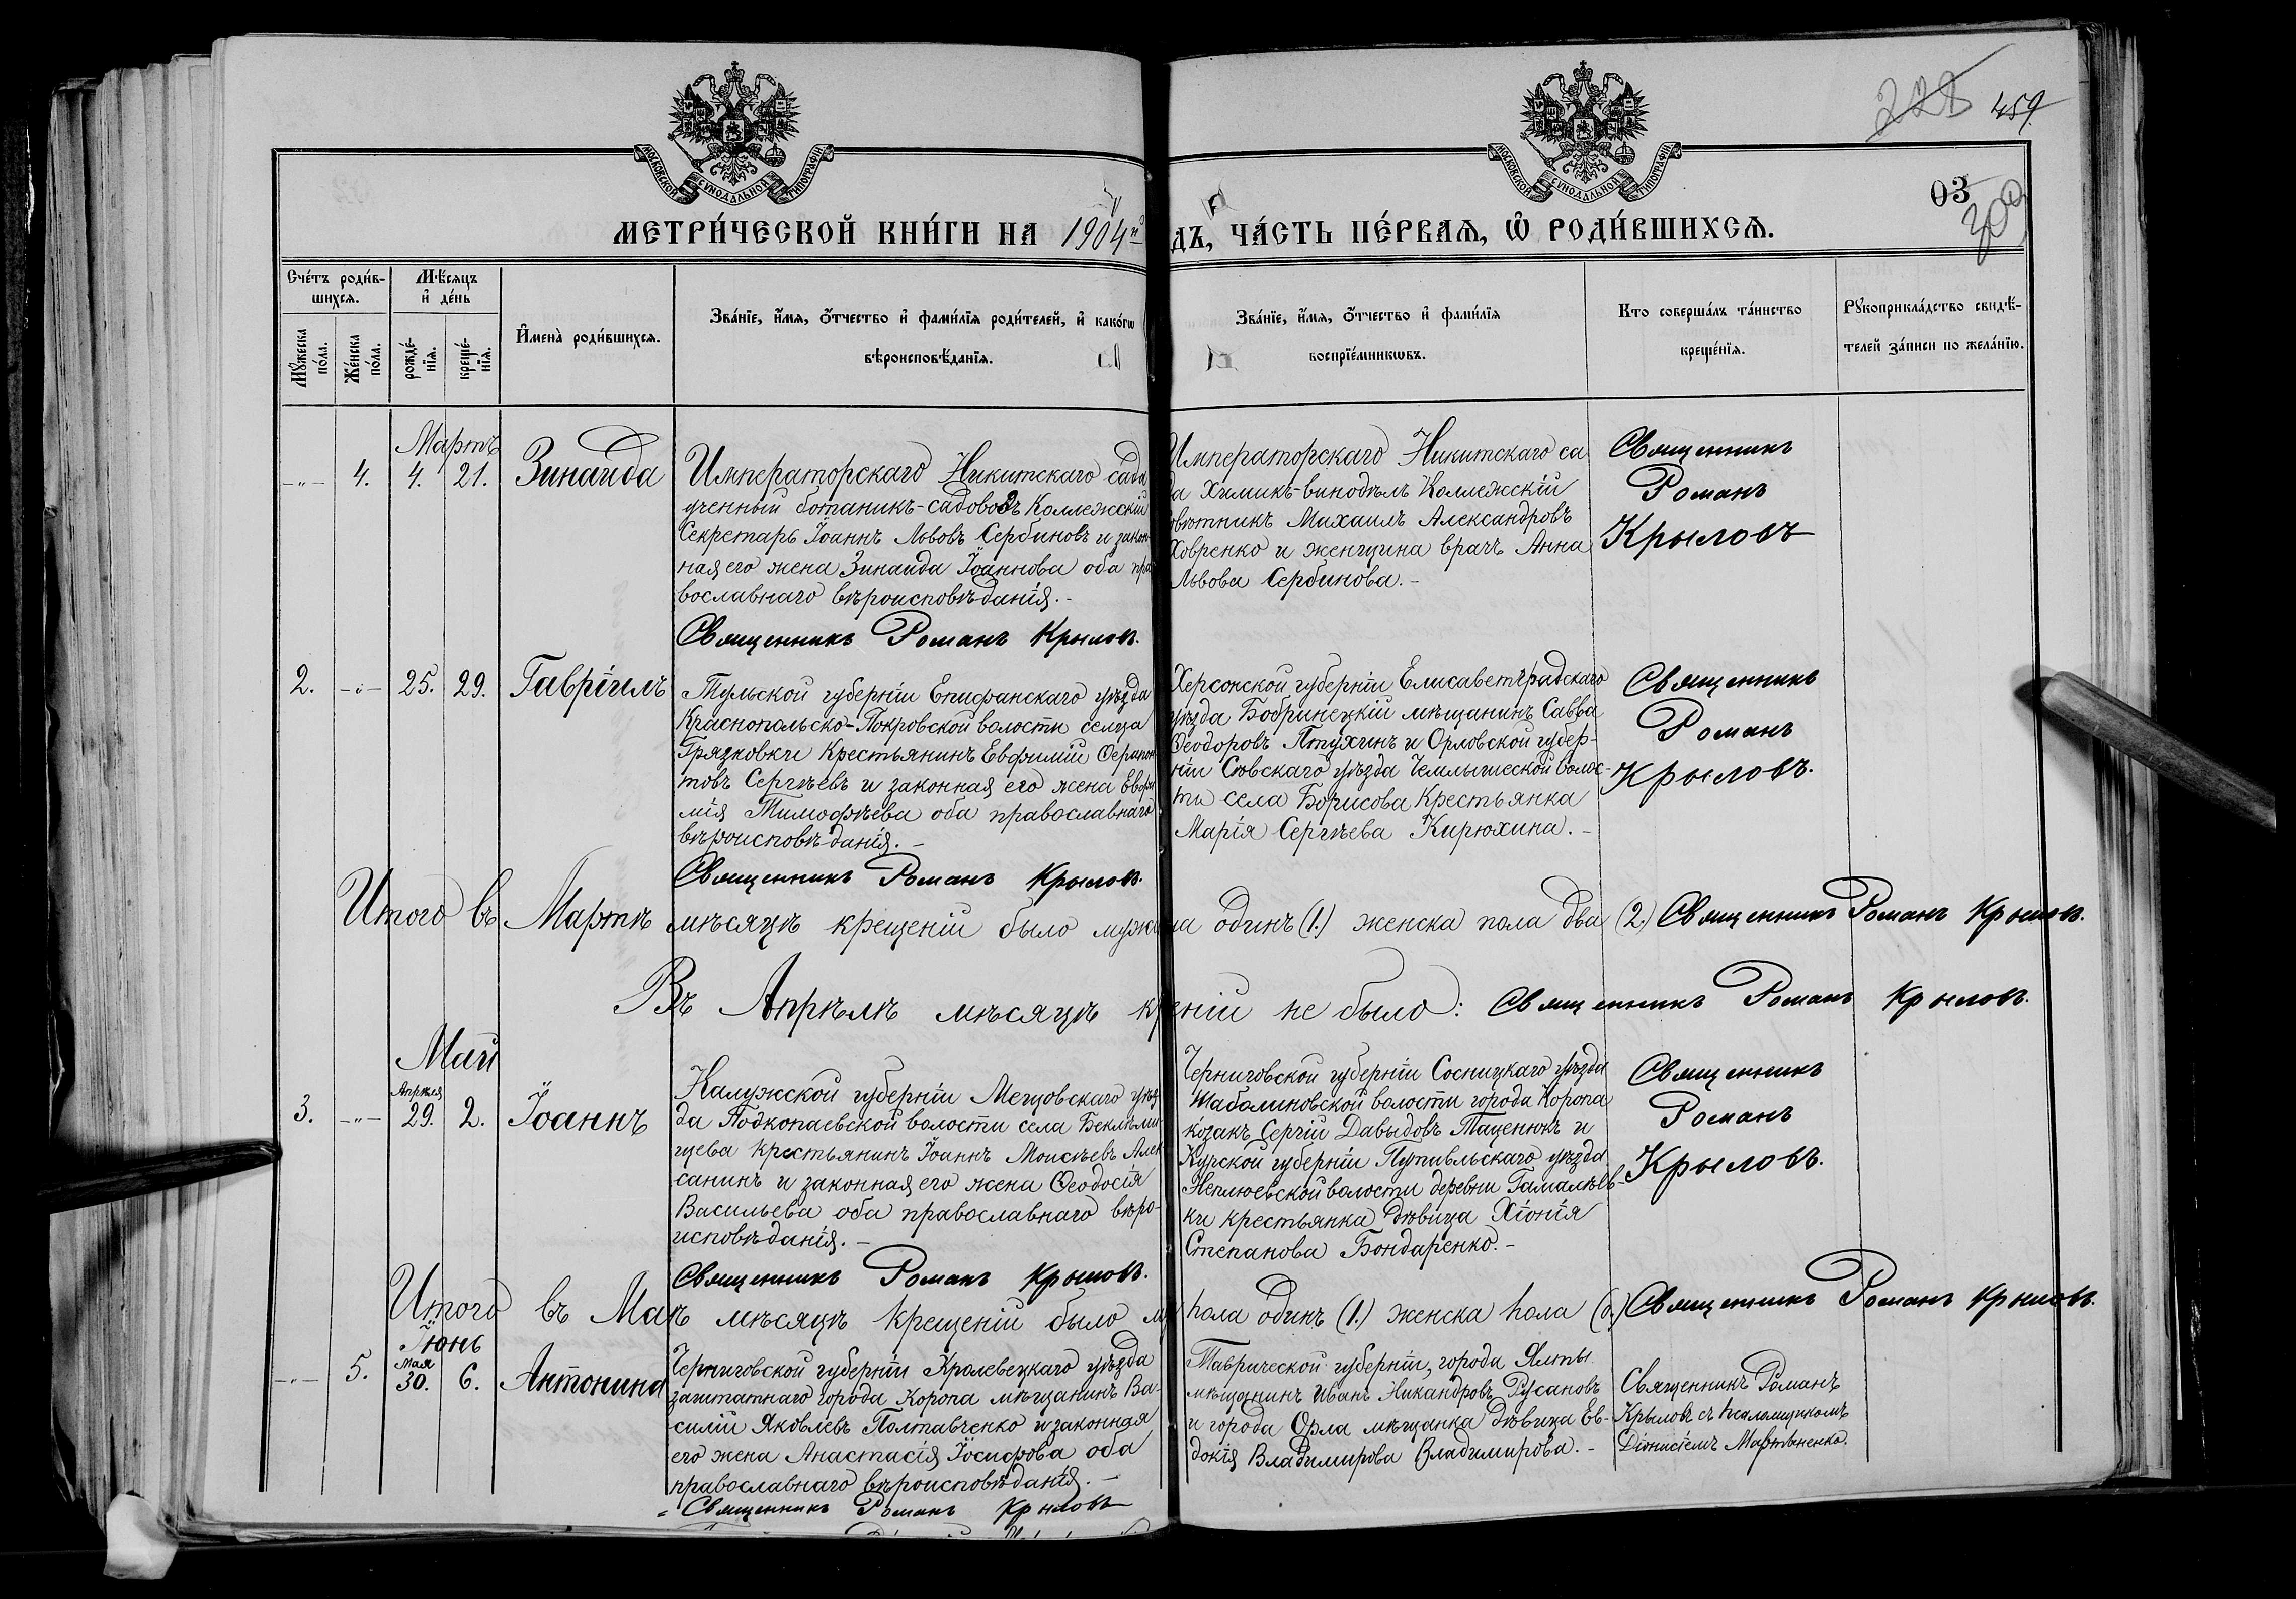 228 459
МОСКОВСКОЙ СѴНОДАЛЬНОЙ ТИПОГРАФІИ
МОСКОВСКОЙ СѴНОДАЛЬНОЙ ТИПОГРАФІИ
03
МЕТРИ́ЧЕСКОЙ КНИ́ГИ НА 1904й
дъ, ЧА́СТЬ ПЕ́РВАѦ, Ѽ РОДИ́ВШИХСѦ.
Сче́тъ роди́в-
шихсѧ.
Мꙋжеска
по́ла.
Же́нска
по́ла.
Мѣ́сѧцъ
и҆ де́нь
рожде́-
нїѧ.
креще́-
нїѧ.
И҆мена̀ роди́вшихсѧ.
Зва́нїе, и҆́мѧ, ѻ҆́тчество и҆ фами́лїѧ роди́телей, и҆ како́гѡ
вѣроисповѣ́данїѧ.
Зва́нїе, и҆́мѧ, ѻ҆́тчество и҆ фами́лїѧ
воспрїе́мникѡвъ.
Кто соверша́лъ та́инство
креще́нїѧ.
Рꙋкоприкла́дство свидѣ́-
телей за́писи по жела́нїю.
Мартъ
-"- 4. 4. 21. Зинаида
Императорскаго Никитскаго сада
ученный ботаникъ-садоводъ Коллежскій
Секретарь Іоаннъ Львовъ Сербиновъ и закон-
ная его жена Зинаида Іоаннова оба пра
вославнаго вѣроисповѣданія.-
Священникъ Романъ Крыловъ.
Императорскаго Никитскаго са
да Химикъ-винодѣлъ Коллежскій
овѣтникъ Михаилъ Александровъ
Ховренко и женщина врачъ Анна
Львова Сербинова.-
Священникъ
Романъ
Крыловъ
2. -"- 25. 29. Гавріилъ
Тульской губерніи Епифанскаго уѣзда
Краснопольско-Покровской волости сельца
Грязновки Крестьянинъ Евфимій Ферапон
товъ Сергѣевъ и законная его жена Евфи
мія Тимофѣева оба православнаго
вѣроисповѣданія.-
Священникъ Романъ Крыловъ.
Херсонской губерніи Елисаветградскаго
уѣзда Бобринецкій мѣщанинъ Савва
Феодоровъ Птухинъ и Орловской губер-
ніи Сѣвскаго уѣзда Чемлыжской волос-
ти села Борисова Крестьянка
Марія Сергѣева Кирюхина.-
Священникъ
Романъ
Крыловъ.
Итого въ Мартѣ мѣсяцѣ крещеній было муж
ла одинъ (1.) женска пола два (2.) Священникъ Романъ Крыловъ.
Въ Апрѣлѣ мѣсяцѣ кр
еній не было: Священникъ Романъ Крыловъ.
Май
Апрѣля
3. -"- 29. 2. Іоаннъ
Калужской губерніи Мещовскаго уѣз
да Подкопаевской волости села Беклѣми
щева Крестьянинъ Іоаннъ Моисѣевъ Алек
санинъ и законная его жена Феодосія
Васильева оба православнаго вѣро-
исповѣданія.-
Священникъ Романъ Крыловъ.
Черниговской губерніи Сосницкаго уѣзда
Шабалиновской волости города Коропа
козакъ Сергій Давыдовъ Таценюкъ и
Курской губерніи Путивльскаго уѣзда
Неплюевской волости деревни Гамалѣев-
ки крестьянка дѣвица Хіонія
Степанова Бондаренко.-
Священникъ
Романъ
Крыловъ.
Итого въ Маѣ мѣсяцѣ крещеній было му
пола одинъ (1.) женска пола (0.) Священникъ Романъ Крыловъ.
Іюнь
Мая
-"- 5. 30. 6. Антонина
Черниговской губерніи Кролевецкаго уѣзда
заштатнаго города Коропа мѣщанинъ Ва-
силій Яковлевъ Полтавченко и законная
его жена Анастасія Іосифова оба
православнаго вѣроисповѣданія.-
Священникъ Романъ Крыловъ
Таврической губерніи, города Ялты
мѣщанинъ Иванъ Никандровъ Русановъ
и города Орла мѣщанка дѣвица Ев-
докія Владимирова Владимирова.-
Священникъ Романъ
Крыловъ съ псаломщикомъ
Діонисіемъ Мартыненко.